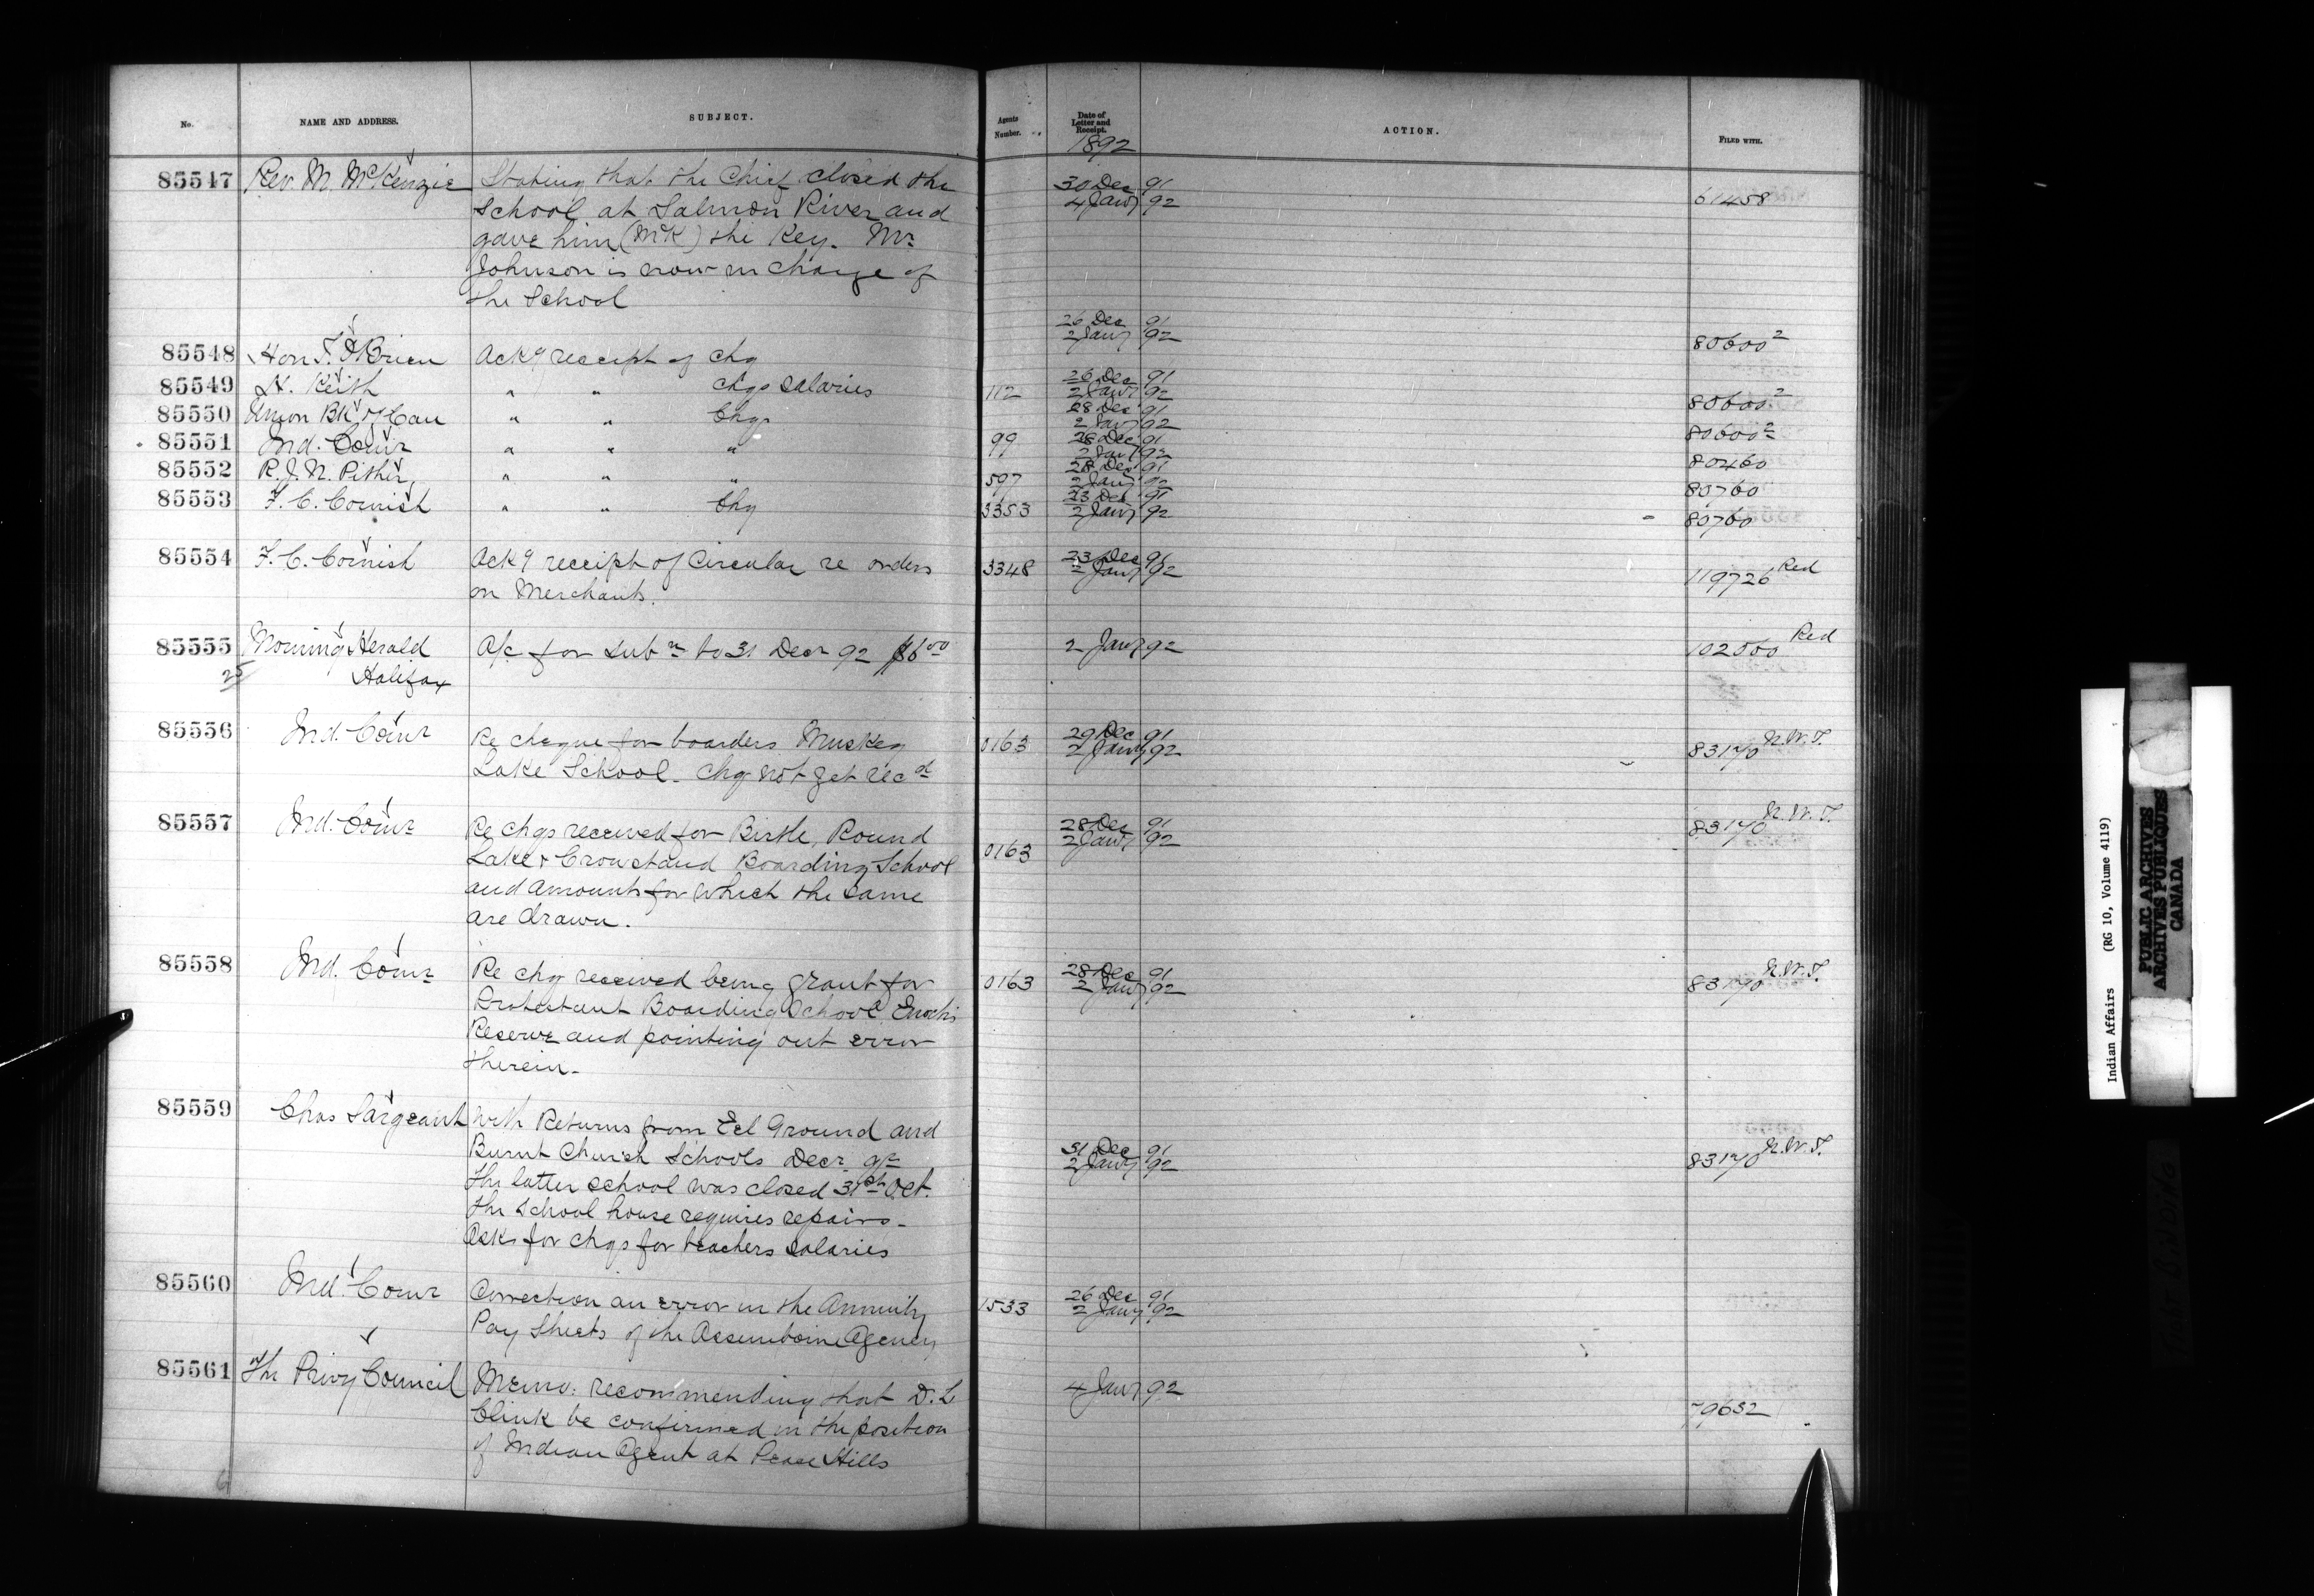 No. NAME AND ADDRESS. SUBJECT. Agents Number. Date of Letter and Receipt. ACTION. FILED WITH.
1892
85547 Rev. M. McKenzie Stating that the Chief closed the 30 Dec 91
School at Salmon River and 4 Jany 92 61458
gave him (McK) the Key. Mr
Johnson is now in charge of
the School
26 Dec 91
85548 Hon J. O'Brien Ackg receipt of chq 2 Jany 92 80600 2
85549 H. Keith " " chqs salaries 112 26 Dec 91 2 Jany 92 80600 2
85550 Union Bk of Can " " Chqs 28 Dec 91 2 Jany 92 80600 2
85551 Ind. Comr " " " 99 28 Dec 91 2 Jany 92 80460
85552 R. J. N. Pither " " " 597 28 Dec 91 2 Jany 92 80760
85553 F. C. Cornish " " Chq 3353 23 Dec 91 2 Jany 92 80760
85554 F. C. Cornish Ackg receipt of Circular re orders 3348 23 Dec 91 119726 Red
on Merchants. 2 Jany 92
85555 Morning Herald A/c for Subn to 31 Decr 92 $6 00 2 Jany 92 102000 Red
25 Halifax
85556 Ind. Comr Re cheque for boarders Muskeg 0163 29 Dec 91 83170 N.W.T.
Lake School. Chq not yet recd 2 Jany 92
85557 Ind. Comr Re chqs received for Birtle, Round 28 Dec 91 83170 N.W.T.
Lake & Crowstand Boarding School 0163 2 Jany 92
and amounts for which the same
are drawn.
85558 Ind. Comr Re chq received being grant for 0163 28 Dec 91 83170 N.W.T.
Protestant Boarding School Enoch's 2 Jany 92
Reserve and pointing out error
therein.
85559 Chas Sargeant With Returns from Eel Ground and
Burnt Church Schools Decr qr 31 Dec 91 83170 N.W.T.
The latter school was closed 31st Oct. 2 Jany 92
The School house requires repairs.
Asks for chqs for teachers salaries
85560 Ind. Comr Correction an error in the Annuity 1533 26 Dec 91
Pay Sheets of the Assiniboine Agency 2 Jany 92
85561 The Privy Council Memo: recommending that D. L 4 Jany 92
Clink be confirmed in the position 79632
of Indian Agent at Peace Hills
Indian Affairs (RG 10, Volume 4119)
PUBLIC ARCHIVES
ARCHIVES PUBLIQUES
CANADA